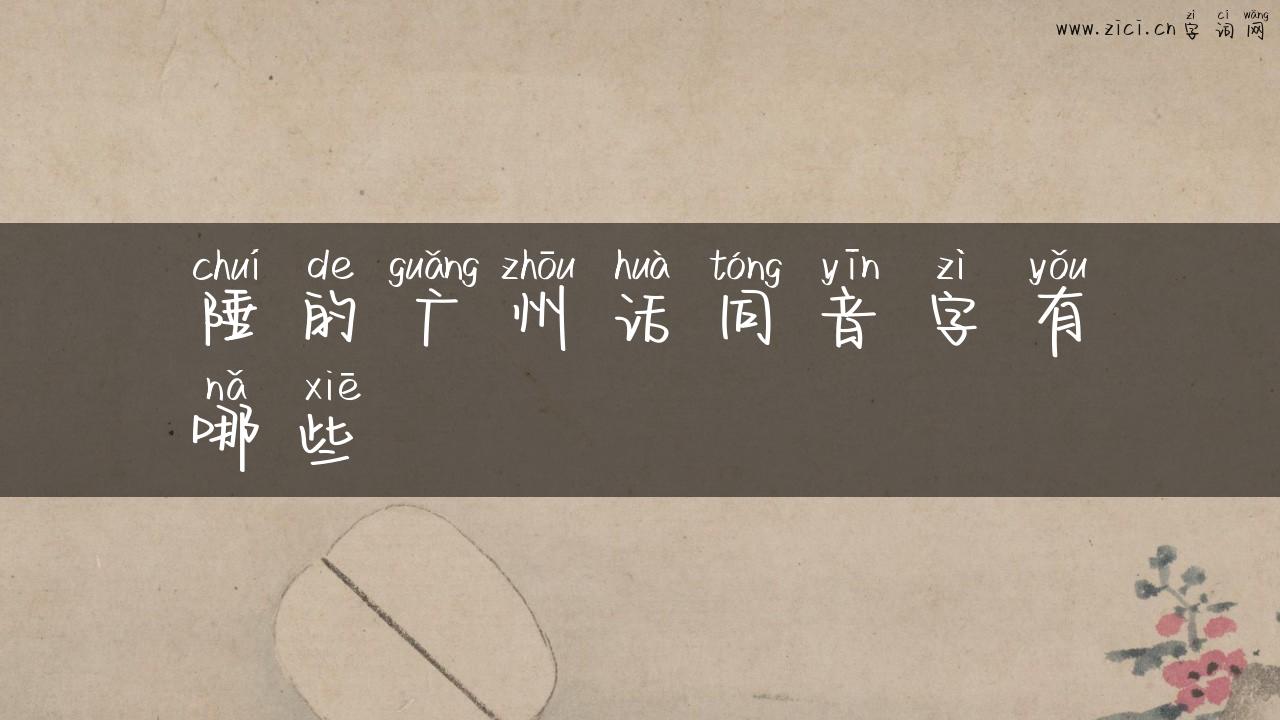 zì cí wǎng
www.zici.cn字词网
chuí de guǎng zhōu huà tóng yīn zì yǒu
陲的广州话同音字有
nǎ xiē
哪些